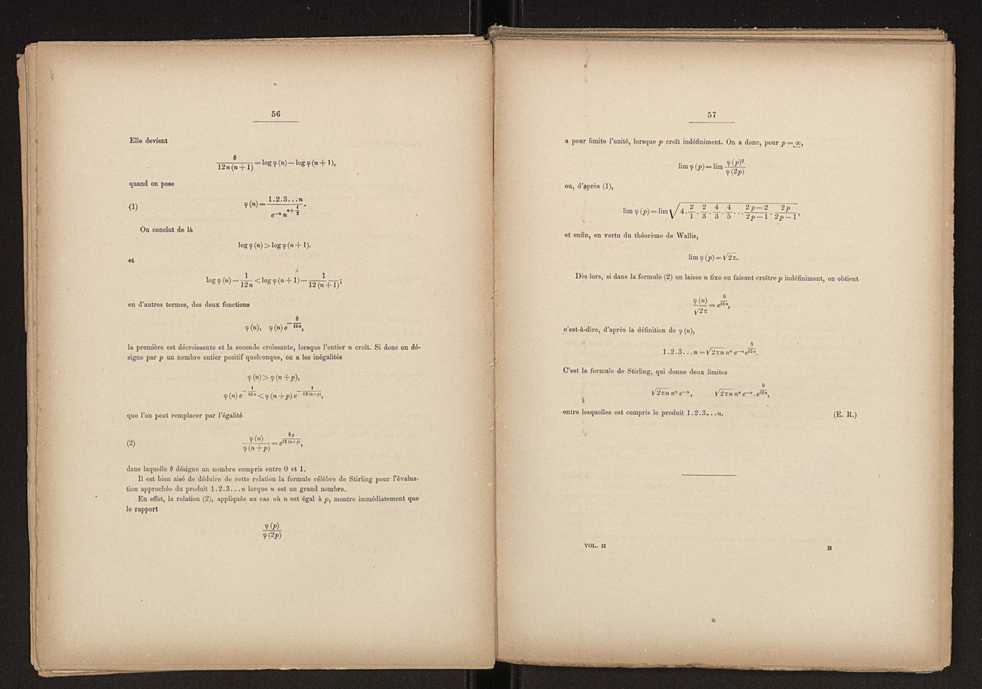 56
Elle devient
θ / 12n(n+1) = log φ(n) − log φ(n+1),
quand on pose
(1) φ(n) = 1.2.3...n / e^{−n} n^{n+1/2}.
On conclut de là
log φ(n) > log φ(n+1).
et
log φ(n) − 1/12n < log φ(n+1) − 1/12(n+1);
en d'autres termes, des deux fonctions
φ(n), φ(n) e^{−θ/12n},
la première est décroissante et la seconde croissante, lorsque l'entier n croît. Si donc on dé-
signe par p un nombre entier positif quelconque, on a les inégalités
φ(n) > φ(n+p),
φ(n) e^{−1/12n} < φ(n+p) e^{−1/12(n+p)},
que l'on peut remplacer par l'égalité
(2) φ(n) / φ(n+p) = e^{θp/12(n+p)},
dans laquelle θ désigne un nombre compris entre 0 et 1.
Il est bien aisé de déduire de cette relation la formule célèbre de Stirling pour l'évalua-
tion approchée du produit 1.2.3...n lorque n est un grand nombre.
En effet, la relation (2), appliquée au cas où n est égal à p, montre immédiatement que
le rapport
φ(p) / φ(2p)
57
a pour limite l'unité, lorsque p croît indéfiniment. On a donc, pour p = ∞,
lim φ(p) = lim φ(p)² / φ(2p)
ou, d'après (1),
lim φ(p) = lim √(4 · 2/1 · 2/3 · 4/3 · 4/5 ... 2p−2/2p−1 · 2p/2p−1),
et enfin, en vertu du théorème de Wallis,
lim φ(p) = √2π.
Dès lors, si dans la formule (2) on laisse n fixe en faisant croître p indéfiniment, on obtient
φ(n) / √2π = e^{θ/12n},
c'est-à-dire, d'après la définition de φ(n),
1.2.3...n = √2πn nⁿ e^{−n} e^{θ/12n}.
C'est la formule de Stirling, qui donne deux limites
√2πn nⁿ e^{−n}, √2πn nⁿ e^{−n} . e^{θ/12n},
entre lesquelles est compris le produit 1.2.3...n. (E. R.)
VOL. II H